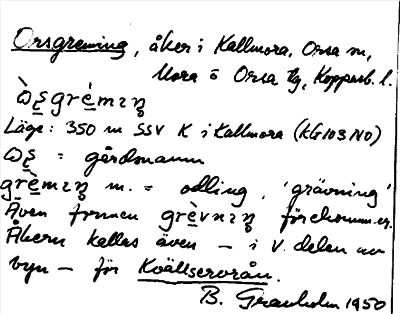 Orsgremming, åker i Kallmora, Orsa sn,
Mora o Orsa tg, Kopparb. l.
ὼʂgrὲmɪŋ
Läge: 350 m SSV K i Kallmora (KG103 NO)
ωʂ = gårdsnamn
grὲmɪŋ m. = odling, 'grävning'
Även formen grὲvnɪŋ förekommer.
Åkern kallas även – i V. delen av
byn – för Kvällserorån.
B. Granholm 1950